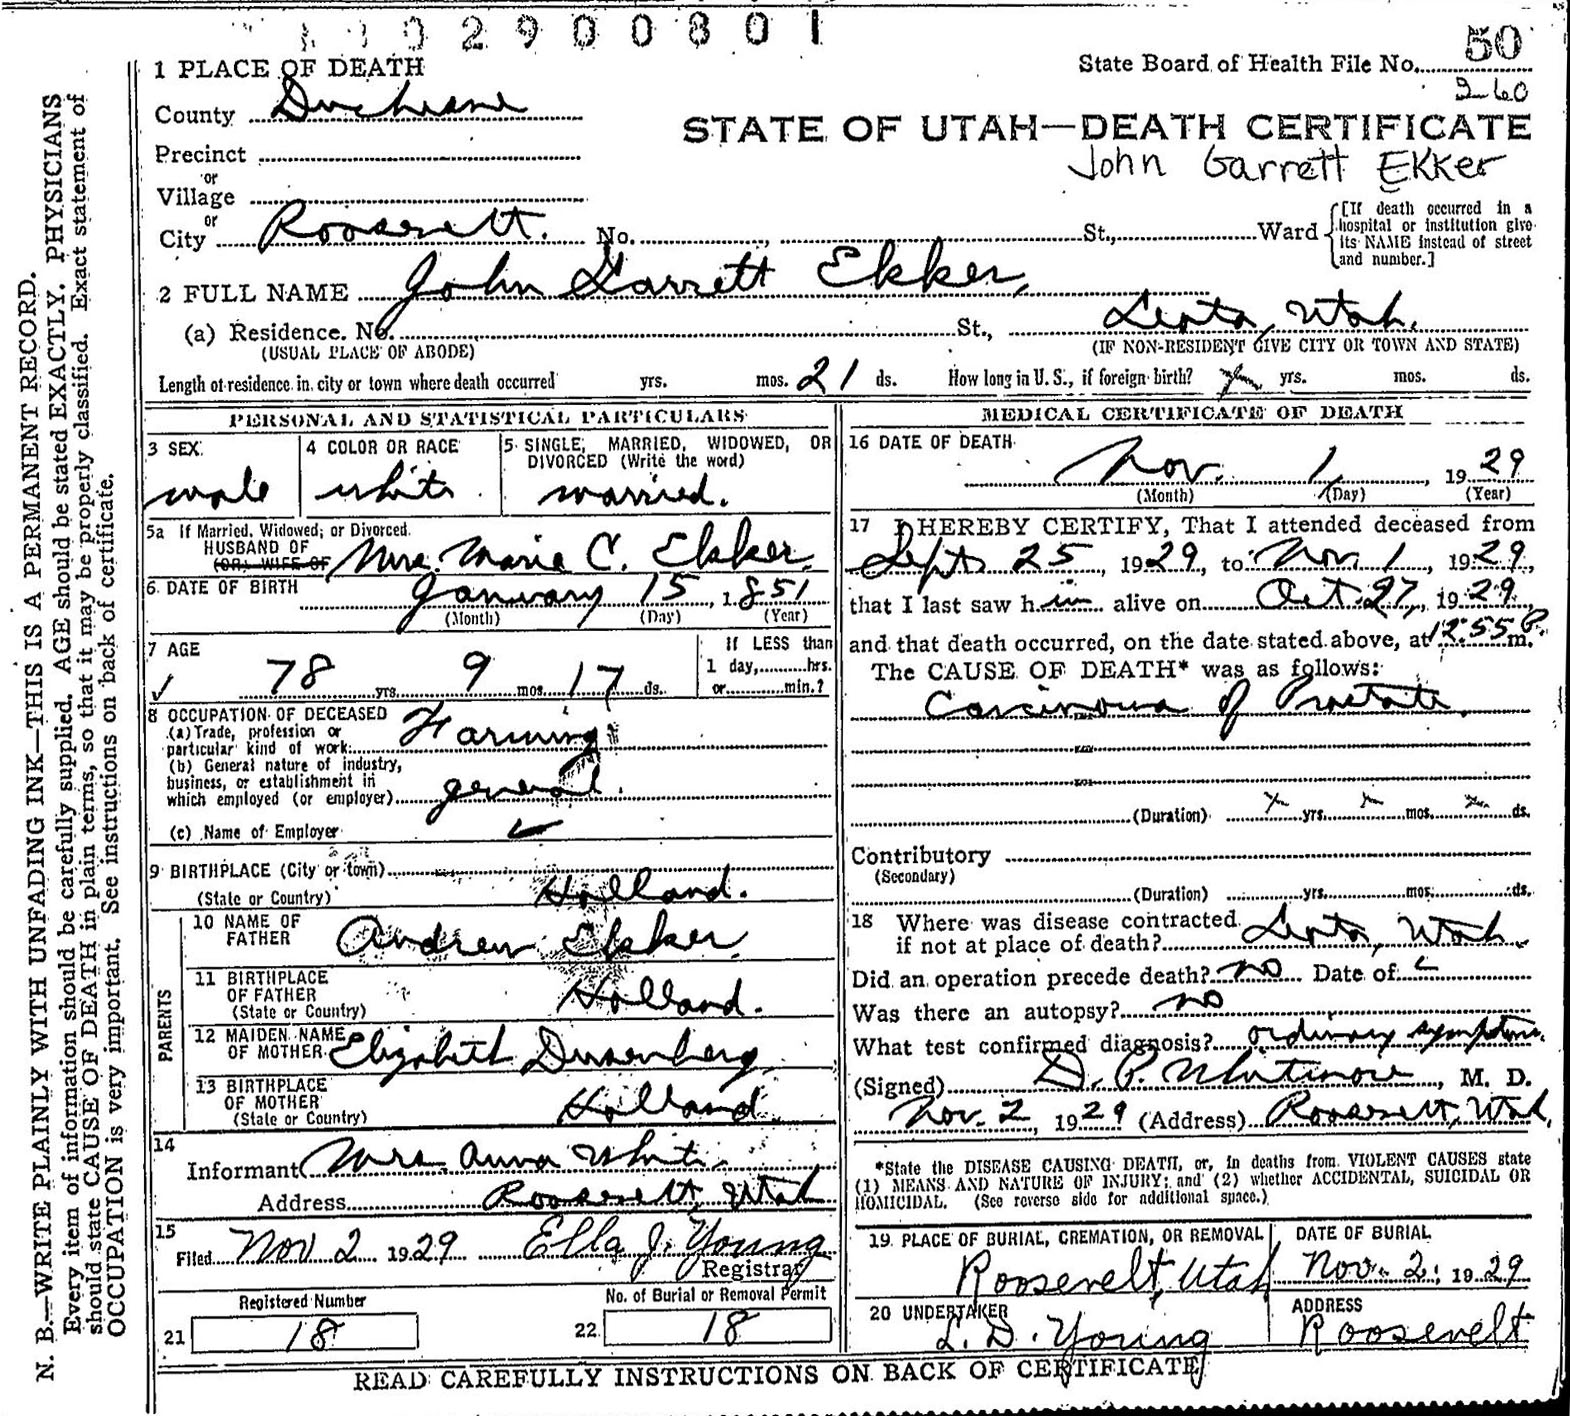 2900801
State Board of Health File No. 50
260
1 PLACE OF DEATH
County Duchesne
STATE OF UTAH—DEATH CERTIFICATE
John Garrett Ekker
Precinct
or
Village
or
City Roosevelt. No. St., Ward
[If death occurred in a hospital or institution give its NAME instead of street and number.]
2 FULL NAME John Garrett Ekker,
(a) Residence. No. St., Leota, Utah.
(USUAL PLACE OF ABODE) (IF NON-RESIDENT GIVE CITY OR TOWN AND STATE)
Length of residence in city or town where death occurred yrs. mos. 21 ds. How long in U. S., if foreign birth? x yrs. mos. ds.
PERSONAL AND STATISTICAL PARTICULARS
3 SEX
male
4 COLOR OR RACE
white
5 SINGLE, MARRIED, WIDOWED, OR DIVORCED (Write the word)
married.
5a If Married, Widowed, or Divorced
HUSBAND OF
(OR) WIFE OF Mrs. Marie C. Ekker.
6 DATE OF BIRTH January 15, 1851
(Month) (Day) (Year)
7 AGE
78 yrs. 9 mos. 17 ds.
If LESS than
1 day, hrs.
or min.?
8 OCCUPATION OF DECEASED
(a) Trade, profession or
particular kind of work Farming
(b) General nature of industry,
business, or establishment in
which employed (or employer) general.
(c) Name of Employer
9 BIRTHPLACE (City or town)
(State or Country) Holland.
PARENTS
10 NAME OF
FATHER Andrew Ekker,
11 BIRTHPLACE
OF FATHER
(State or Country) Holland.
12 MAIDEN NAME
OF MOTHER Elizabeth
13 BIRTHPLACE
OF MOTHER
(State or Country) Holland
14
Informant Mrs. Anna White
Address Roosevelt, Utah
15
Filed Nov 2 1929 Ella J. Young
Registrar
Registered Number
21 18
No. of Burial or Removal Permit
22 18
MEDICAL CERTIFICATE OF DEATH
16 DATE OF DEATH
Nov. 1, 1929
(Month) (Day) (Year)
17 I HEREBY CERTIFY, That I attended deceased from
Sept 25, 1929, to Nov. 1, 1929,
that I last saw h im alive on Oct. 27, 1929,
and that death occurred, on the date stated above, at 12:55 P. m.
The CAUSE OF DEATH* was as follows:
Carcinoma of Prostate.
(Duration) x yrs. x mos. x ds.
Contributory
(Secondary)
(Duration) yrs. mos. ds.
18 Where was disease contracted
if not at place of death? Leota, Utah.
Did an operation precede death? no Date of
Was there an autopsy? no
What test confirmed diagnosis? ordinary symptoms.
(Signed) D. P. Whitmore, M. D.
Nov. 2, 1929 (Address) Roosevelt, Utah.
*State the DISEASE CAUSING DEATH, or, in deaths from VIOLENT CAUSES state
(1) MEANS AND NATURE OF INJURY; and (2) whether ACCIDENTAL, SUICIDAL OR
HOMICIDAL. (See reverse side for additional space.)
19 PLACE OF BURIAL, CREMATION, OR REMOVAL
Roosevelt, Utah
DATE OF BURIAL
Nov. 2, 1929
20 UNDERTAKER
L. D. Young
ADDRESS
Roosevelt
READ CAREFULLY INSTRUCTIONS ON BACK OF CERTIFICATE
N. B.—WRITE PLAINLY WITH UNFADING INK—THIS IS A PERMANENT RECORD.
Every item of information should be carefully supplied. AGE should be stated EXACTLY. PHYSICIANS
should state CAUSE OF DEATH in plain terms, so that it may be properly classified. Exact statement of
OCCUPATION is very important. See instructions on back of certificate.